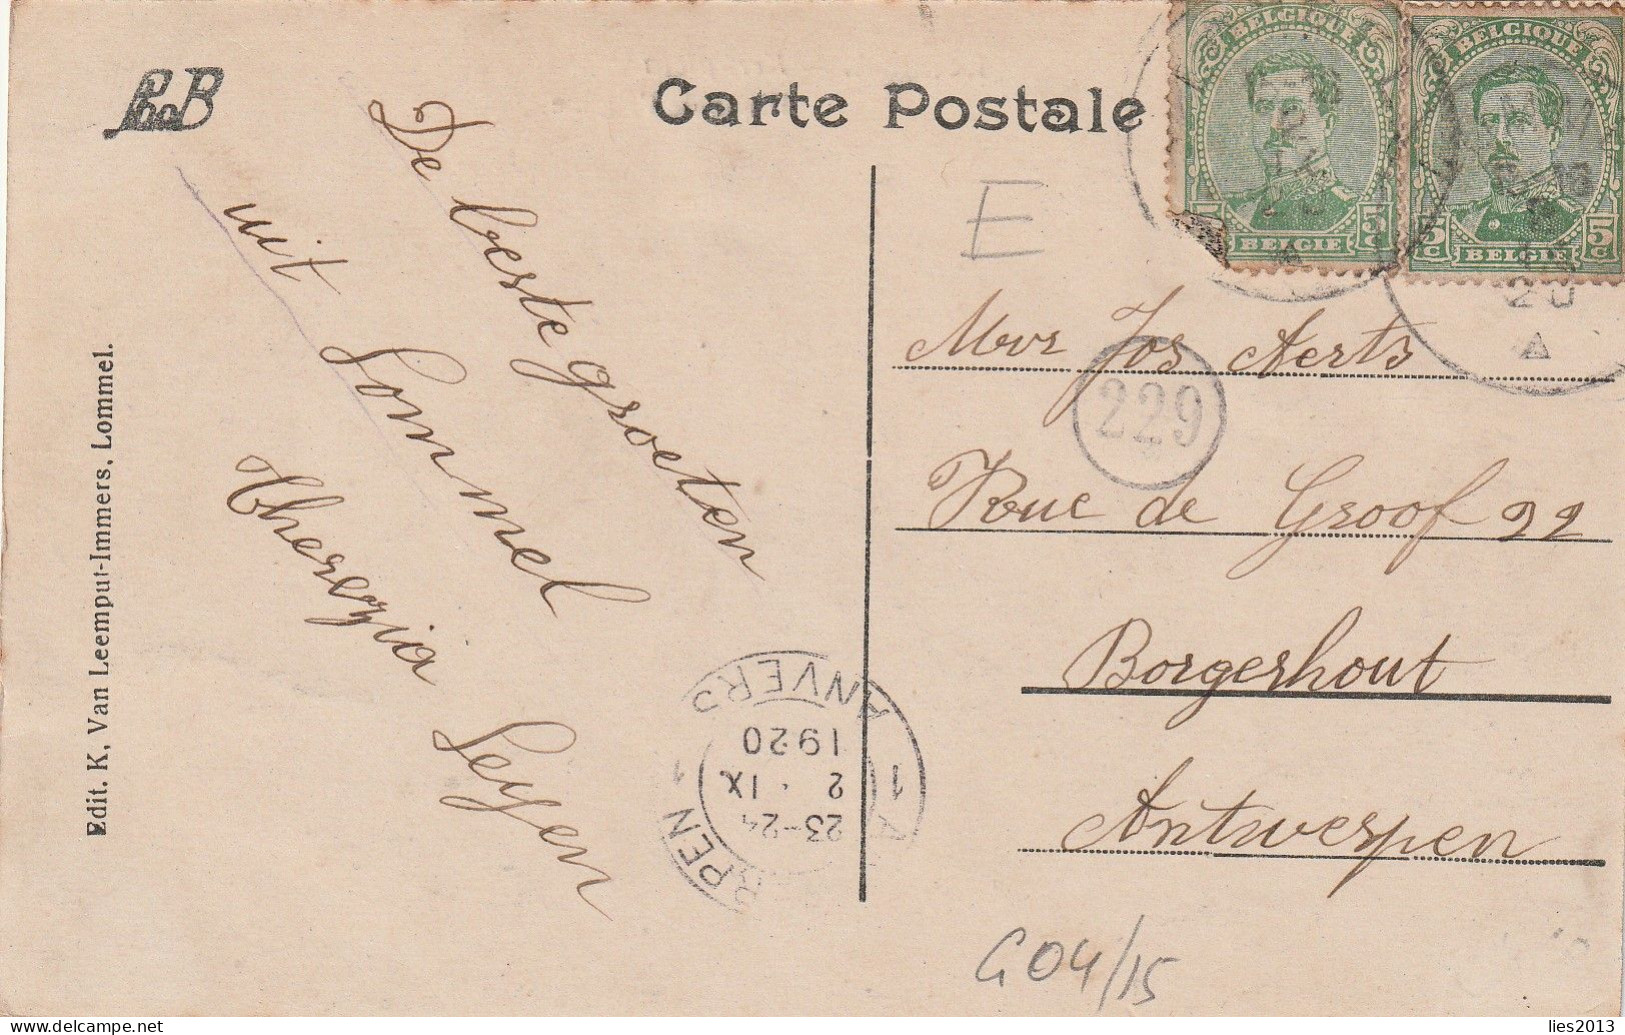 PhoB
Carte Postale
BELGIQUE
5c 5c
BELGIE
BELGIQUE
5c 5c
BELGIE
E
De beste groeten
uit Lommel
Therezia Leyen
Mvr Jos Aerts
229
Rue de Groof 22
Borgerhout
Antwerpen
ANVERS
1920
2 · IX
23-24
1 1
RPEN
Edit. K. Van Leemput-Immers, Lommel.
G04/15
lies2013